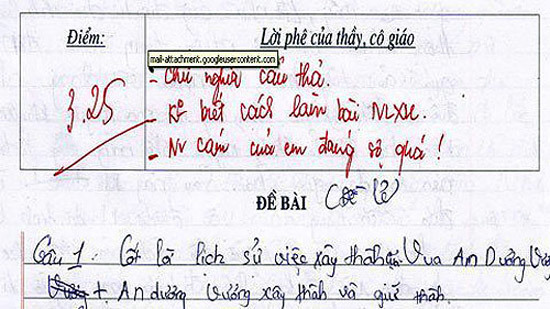 Điểm:
Lời phê của thầy, cô giáo
mail-attachment.googleusercontent.com
3,25
- Chữ nghĩa cẩu thả.
- K° biết cách làm bài NLXH.
- Nv cảm của em đáng sợ quá!
ĐỀ BÀI
Câu 1. Cốt lõi lịch sử việc xây thành, Vua An Dương
+ An dương vương xây thành và giữ thành.